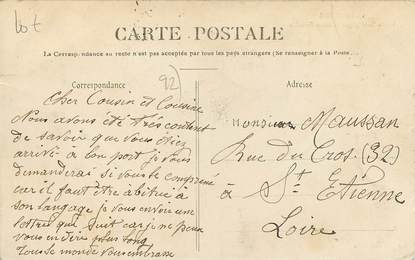 lot
CARTE POSTALE
La Correspondance au recto n'est pas acceptée par tous les pays étrangers (Se renseigner à la Poste.)
Correspondance
92
Adresse
Cher Cousin et Cousine
Nous avons été très content
de savoir que vous étiez
arrivé à bon port je vous
demanderai si vous le comprené
car il faut être abitué à
son langage je vous envoie une
lettre qui suit car je ne peux
vous en dire plus long
Tous le monde vous embrasse
Monsieur Maussan
Rue du Cros (32)
à St Etienne
Loire